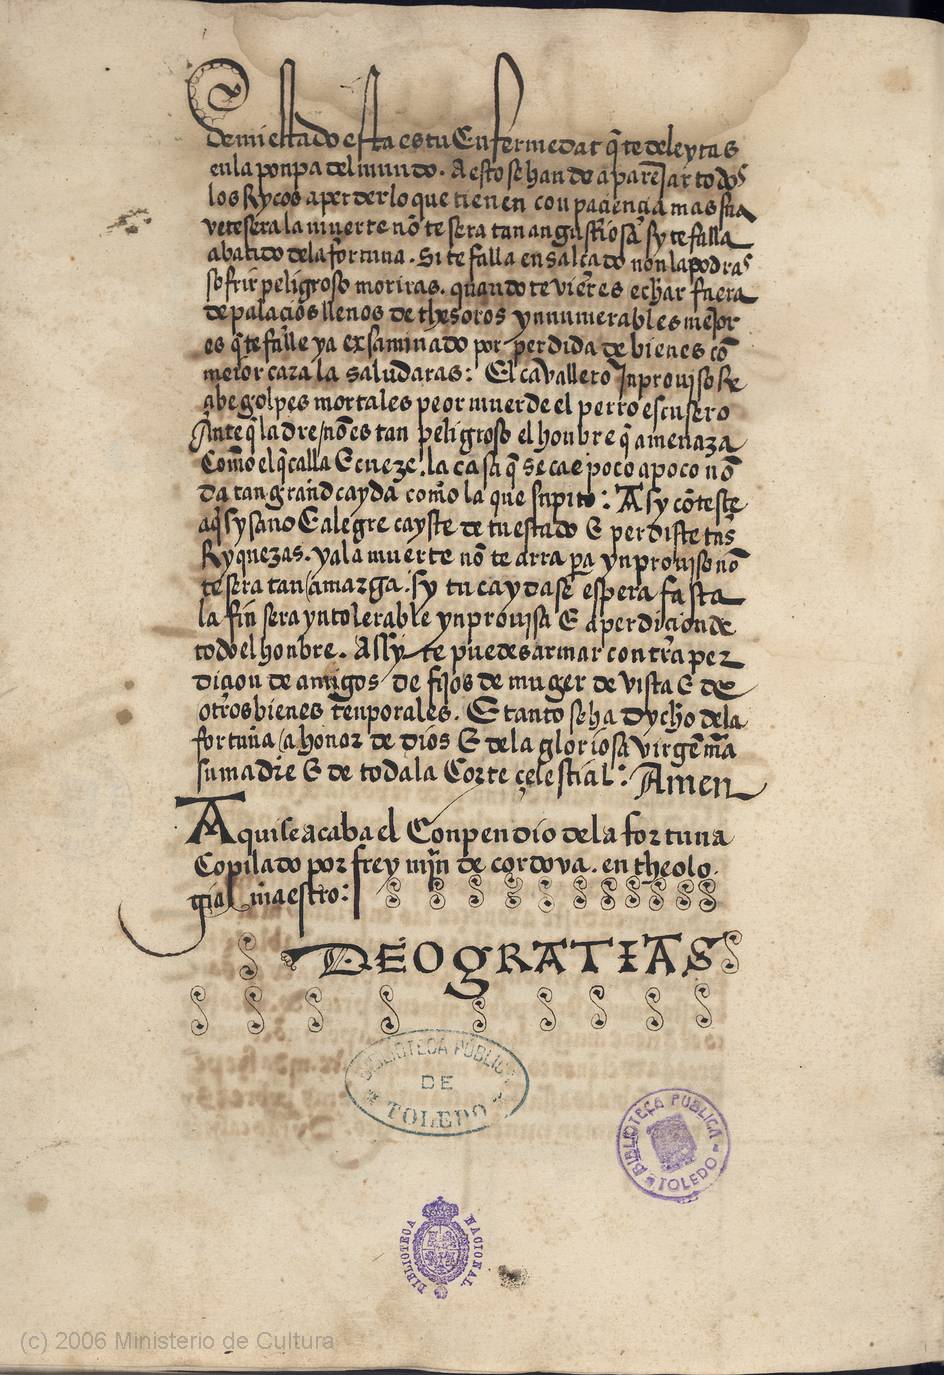 demi estado esta es tu Enfermedat q̃ te deleytas
en la ponpa del mundo. A esto se han de aparejar todos
los Rycos a perder lo que tienen con paciencia mas sua
vete sera la muerte nõ te sera tan angustiosa sy te falla
abatido de la fortuna. Si te falla ensalçado non la podras
sofrir peligroso moriras. quando te vieres echar fuera
de palacios llenos de thesoros ynnumerables mejor
es q̃ te falle ya exsaminado por perdida de bienes cõ
mejor cara la saludaras: El cavallero Inproviso Re
çibe golpes mortales peor muerde el perro escusero
Ante q̃ ladre / nõ es tan peligroso el honbre q̃ amenaza
Como el q̃ calla E cueze. la casa q̃ se cae poco a poco nõ
da tan grand cayda como la que supito: Asy cõteste
aq̃ sy sano E alegre cayste de tu estado E perdiste tus
Ryquezas. ya la muerte nõ te arra pa ynproviso nõ
te sera tan amarga. sy tu cayda se espera fasta
la fin sera yntolerable ynprovisa E a perdicion de
todo el honbre. Assy te puedes armar contra per
dicion de amigos de fijos de muger de vista E de
otros bienes tenporales. E tanto se ha dycho de la
fortuna / a honor de dios E de la gloriosa virgen mã
su madre E de toda la Corte çelestial: Amen
Aqui se acaba el Conpendio de la fortuna
Copilado por frey mỹn de cordova. en theolo
gia maestro:
DEO GRATIAS
BIBLIOTECA PUBLICA
DE
TOLEDO
BIBLIOTECA PUBLICA
TOLEDO
BIBLIOTECA NACIONAL
(c) 2006 Ministerio de Cultura